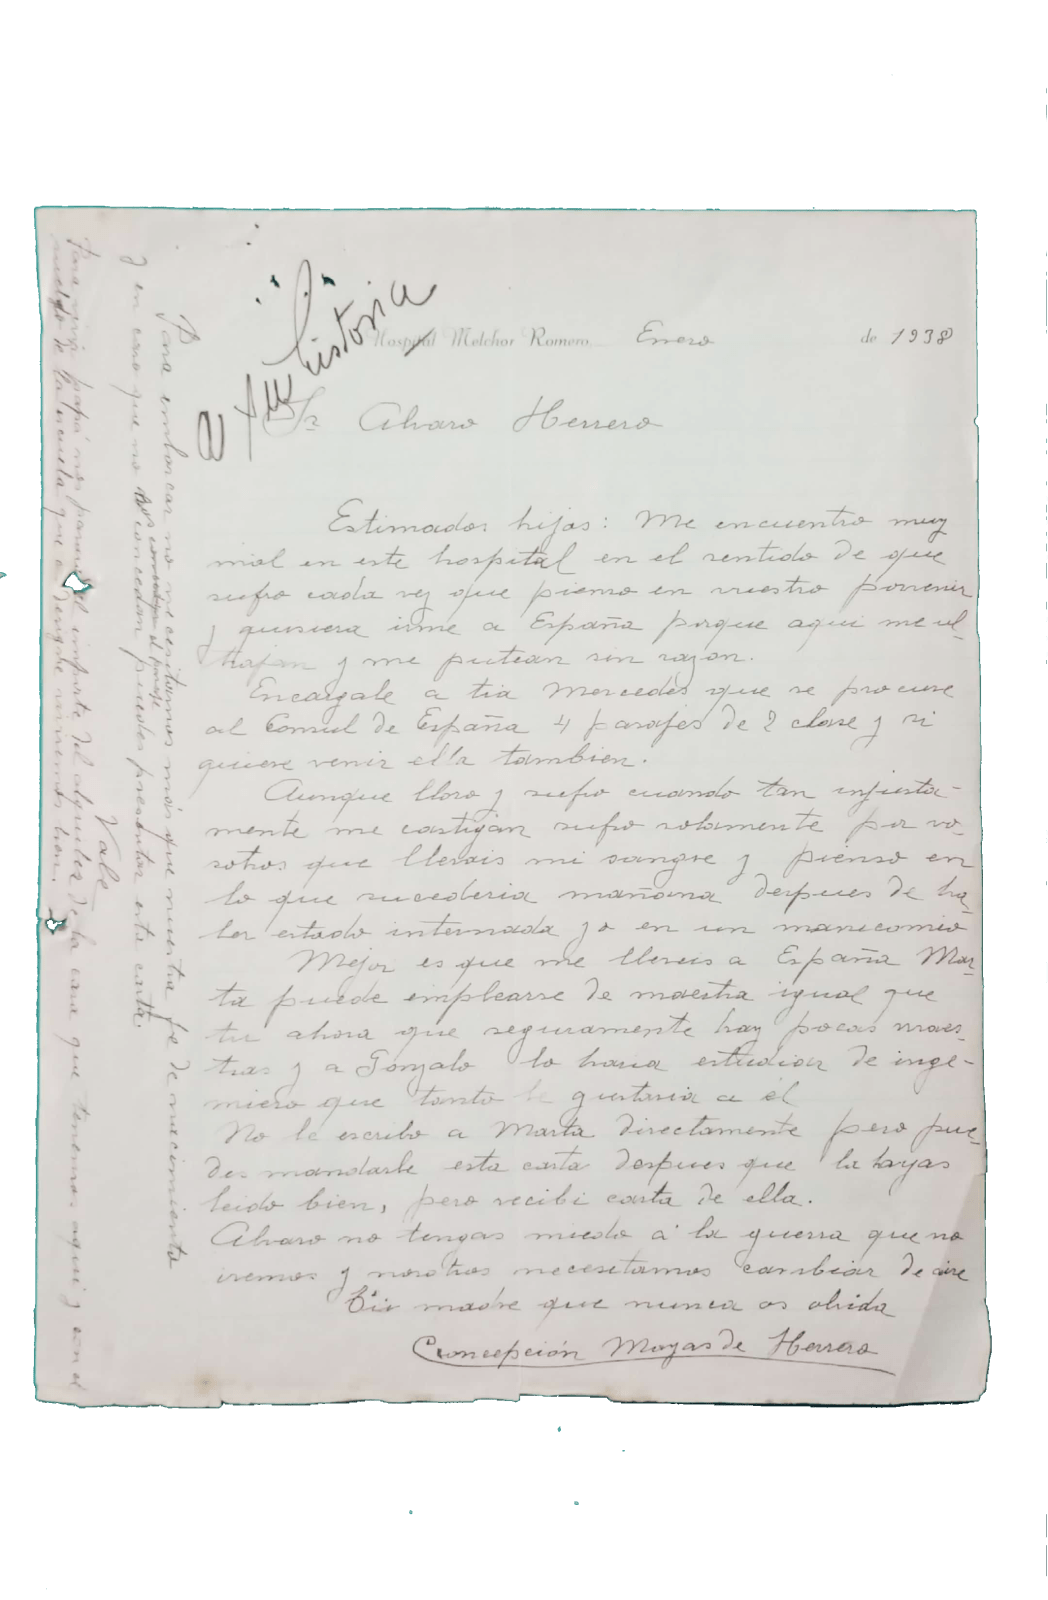 a su historia
Hospital Melchor Romero, Enero de 1938
Sr Alvaro Herrero
Estimados hijos: Me encuentro muy
mal en este hospital en el sentido de que
sufro cada vez que pienso en vuestro porvenir
y quisiera irme a España porque aqui me ul-
trajan y me putean sin razon.
Encargale a tia Mercedes que se procure
al Consul de España 4 pasajes de 2 clase y si
quiere venir ella tambien.
Aunque lloro y sufro cuando tan injusta-
mente me castigan sufro solamente por vo-
sotros que llevais mi sangre y pienso en
lo que sucederia mañana despues de ha-
ber estado internada yo en un manicomio
Mejor es que me lleveis a España Mar-
ta puede emplearse de maestra igual que
tu ahora que seguramente hay pocas maes-
tras y a Gonzalo lo haria estudiar de inge-
niero que tanto le gustaria a él
No le escribo a Marta directamente pero pue-
des mandarle esta carta despues que la hayas
leido bien, pero recibi carta de ella.
Alvaro no tengas miedo a la guerra que no
iremos y nosotros necesitamos cambiar de aire
Tu madre que nunca os olvida
Concepción Moyas de Herrero
Para embarcar no necesitamos más que nuestra fe de nacimiento
y en caso que no nos concedan puedes presentar esta carta.
Vale
Para papá nos el importe del alquiler de la casa que tenemos aqui y con el
sueldo de la escuela que viviremos bien.